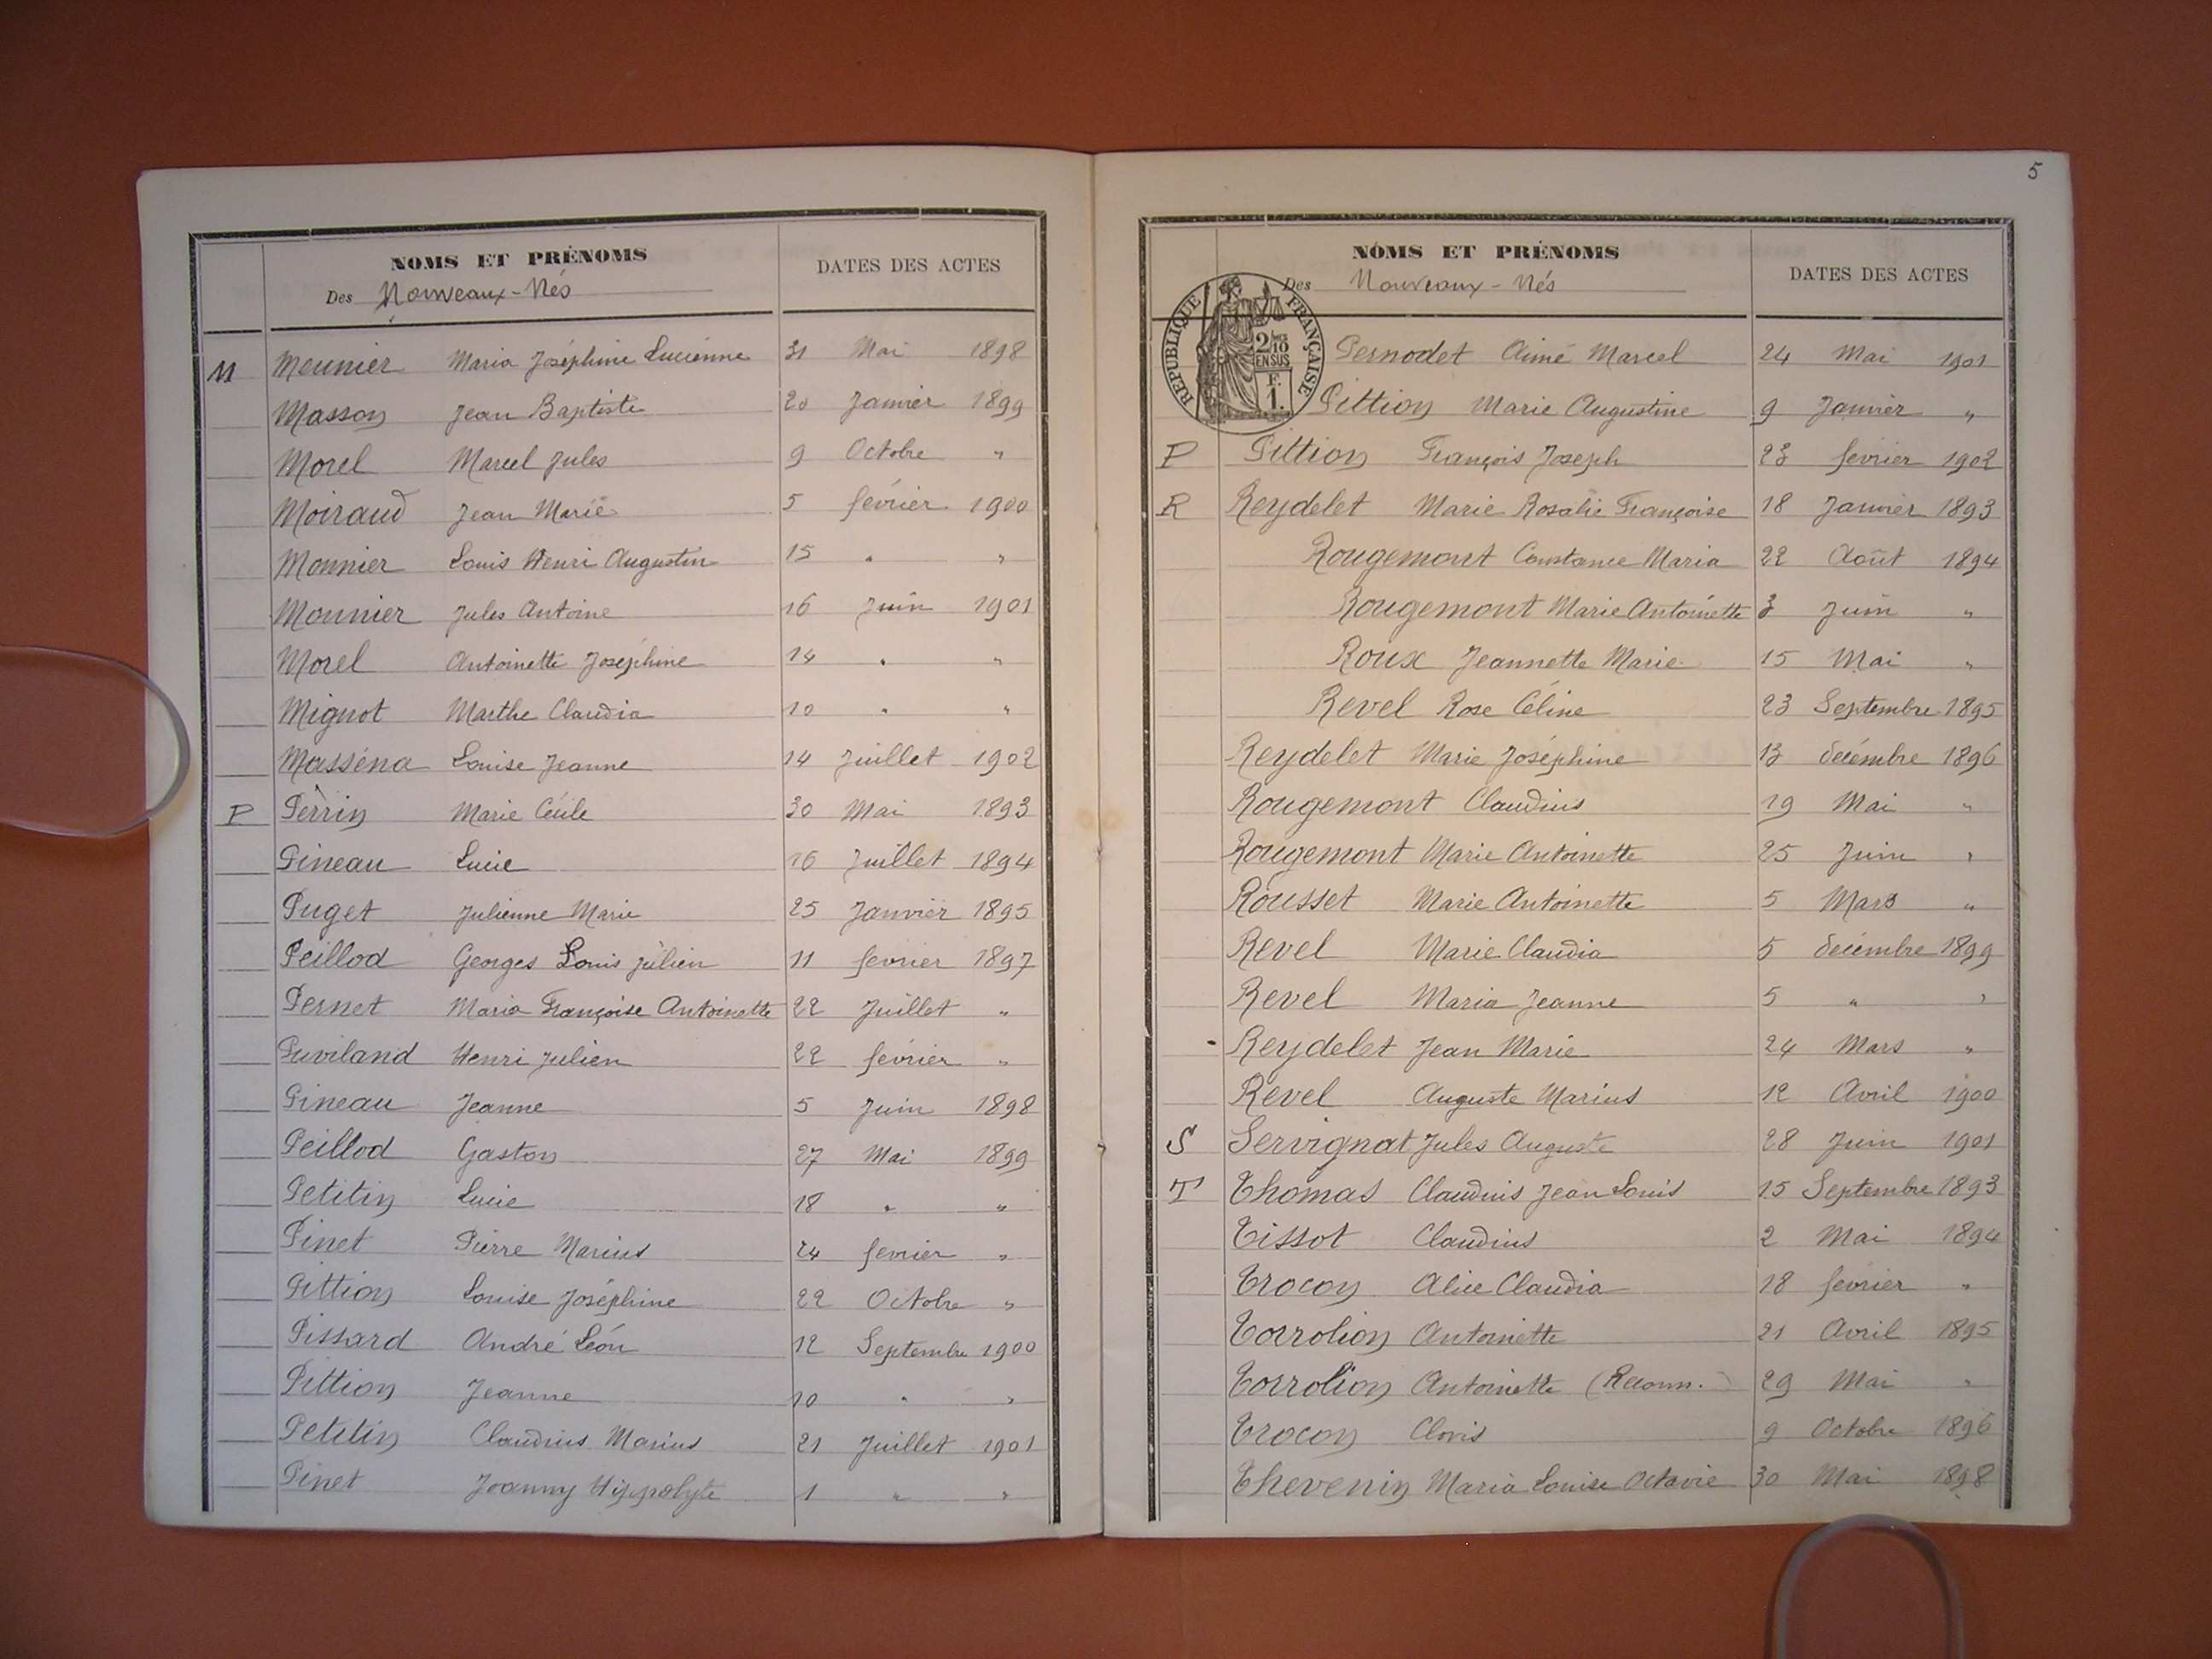 NOMS ET PRÉNOMS
Des Nouveaux-Nés
DATES DES ACTES
M Meunier Maria Joséphine Lucienne 31 Mai 1898
Masson Jean Baptiste 20 Janvier 1899
Morel Marcel Jules 9 Octobre "
Moiraud Jean Marie 5 février 1900
Monnier Louis Henri Augustin 15 " "
Monnier Jules Antoine 16 Juin 1901
Morel Antoinette Joséphine 14 " "
Mignot Marthe Claudia 10 " "
Masséna Louise Jeanne 14 Juillet 1902
P Perrin Marie Cécile 30 Mai 1893
Pineau Lucie 16 Juillet 1894
Puget Julienne Marie 25 Janvier 1895
Peillod Georges Louis Julien 11 fevrier 1897
Pernet Maria Françoise Antoinette 22 Juillet "
Puviland Henri Julien 22 février "
Pineau Jeanne 5 Juin 1898
Peillod Gaston 27 Mai 1899
Petitin Lucie 18 " "
Pinet Pierre Marius 24 fevrier "
Pittion Louise Joséphine 22 Octobre "
Pissard André Léon 12 Septembre 1900
Pittion Jeanne 10 " "
Petitin Claudius Marius 21 Juillet 1901
Pinet Joanny Hippolyte 1 " "
5
NOMS ET PRÉNOMS
Des Nouveaux-Nés
DATES DES ACTES
RÉPUBLIQUE FRANÇAISE
2/10
EN SUS
F.
1.
Pernodet Aimé Marcel 24 Mai 1901
Pittion Marie Augustine 9 Janvier "
P Pittion François Joseph 23 février 1902
R Reydelet Marie Rosalie Françoise 18 Janvier 1893
Rougemont Constance Maria 22 Août 1894
Rougemont Marie Antoinette 3 Juin "
Roux Jeannette Marie 15 Mai "
Revel Rose Céline 23 Septembre 1895
Reydelet Marie Joséphine 13 décembre 1896
Rougemont Claudius 19 Mai "
Rougemont Marie Antoinette 25 Juin "
Rousset Marie Antoinette 5 Mars "
Revel Marie Claudia 5 décembre 1899
Revel Maria Jeanne 5 " "
Reydelet Jean Marie 24 Mars "
Revel Auguste Marius 12 Avril 1900
S Servignat Jules Auguste 28 Juin 1901
T Thomas Claudius Jean Louis 15 Septembre 1893
Tissot Claudius 2 Mai 1894
Trocon Alice Claudia 18 fevrier "
Torrolion Antoinette 21 Avril 1895
Torrolion Antoinette (Reconn.) 29 Mai "
Trocon Clovis 9 Octobre 1896
Thevenin Maria Louise Octavie 30 Mai 1898